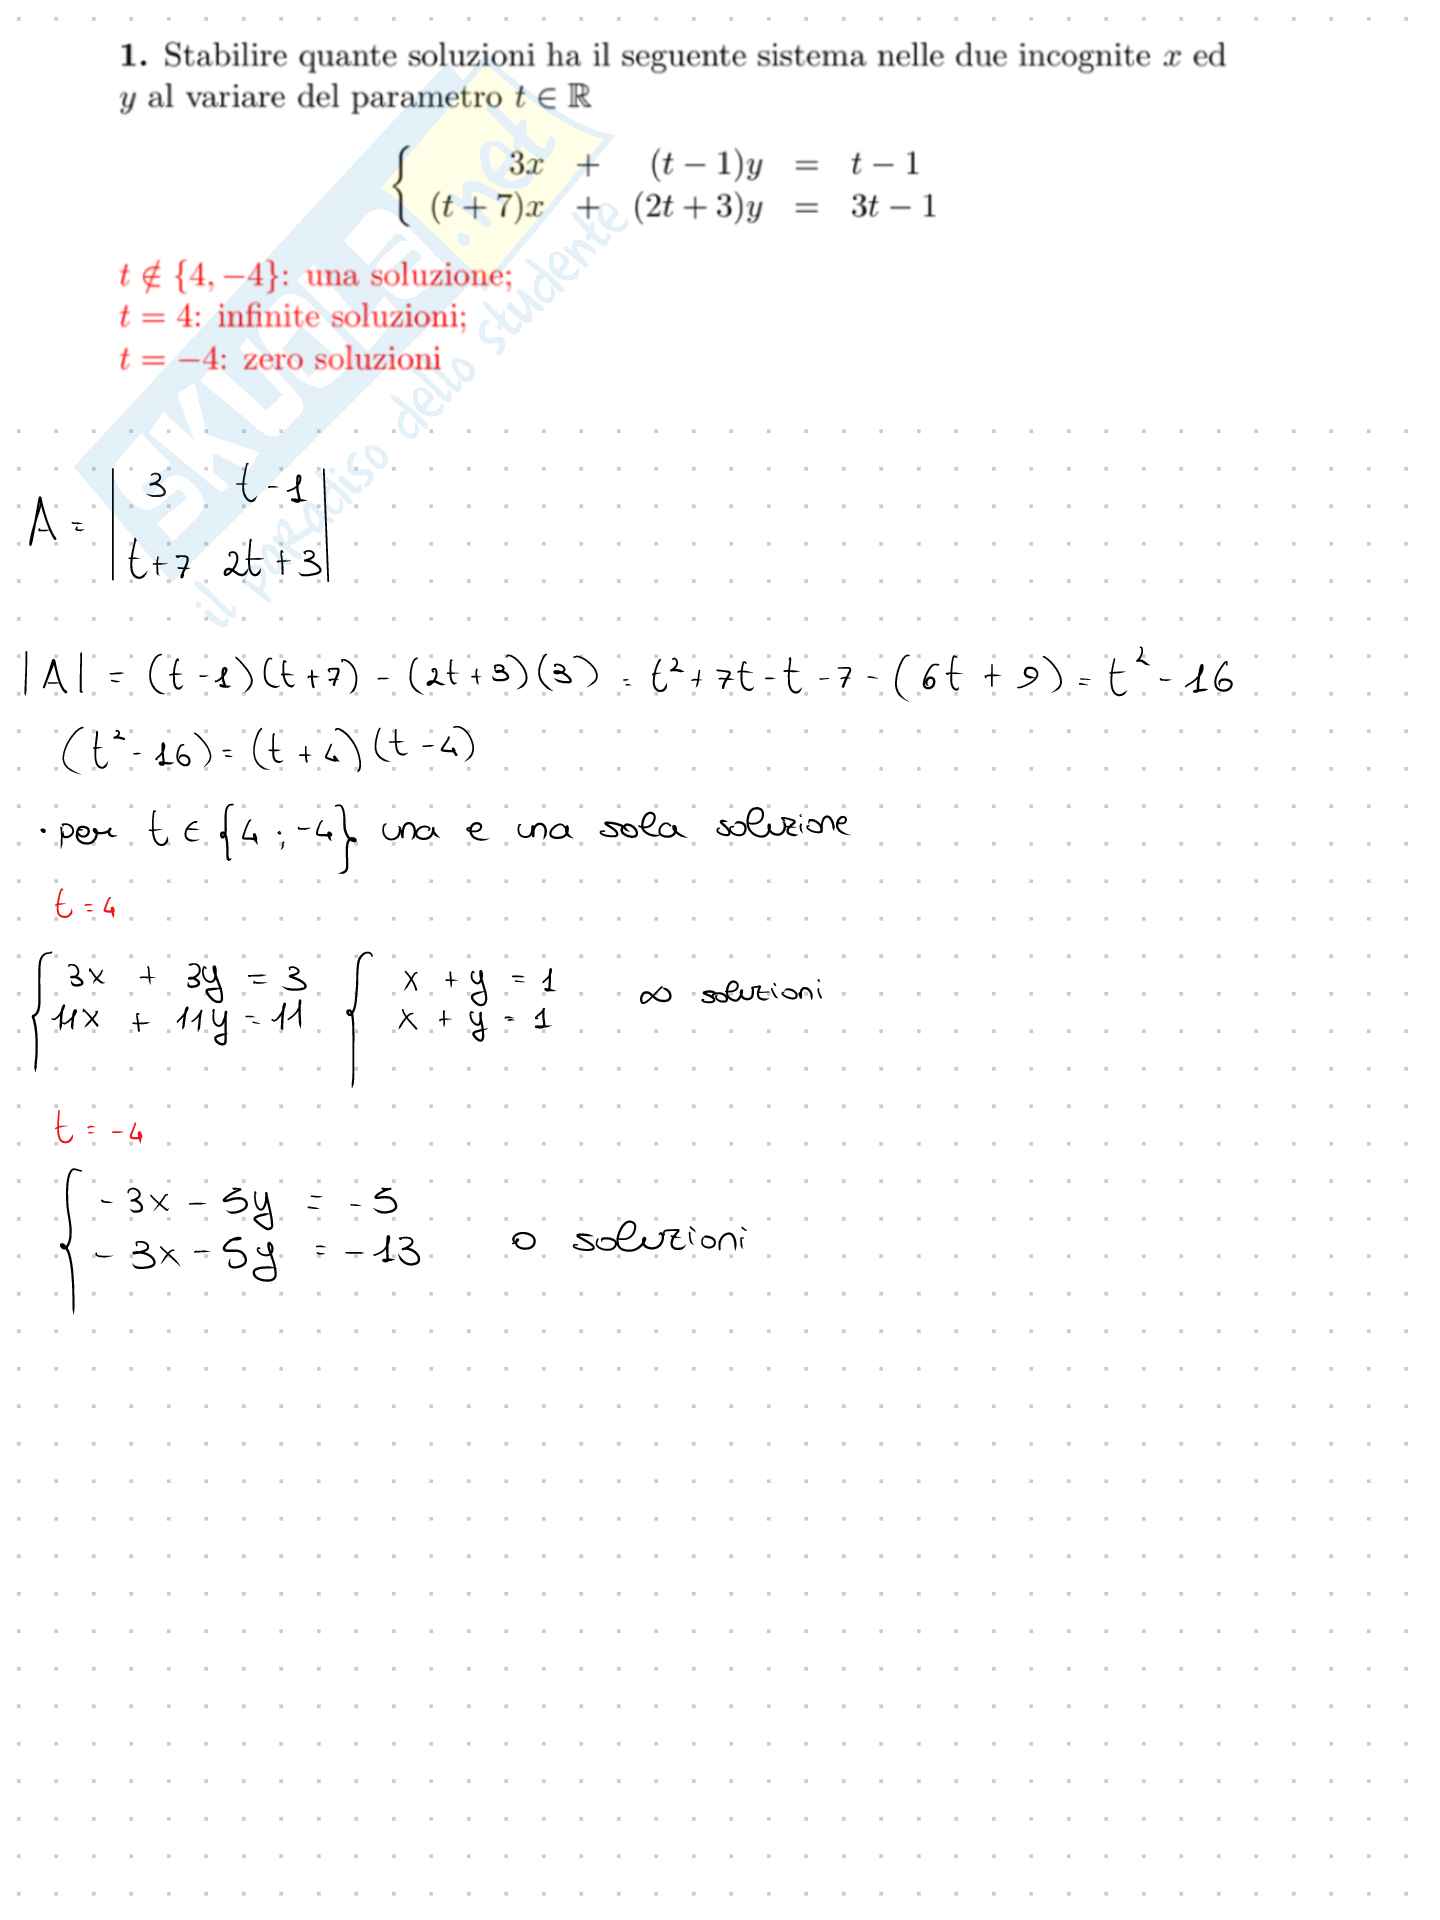 1. Stabilire quante soluzioni ha il seguente sistema nelle due incognite x ed
y al variare del parametro t ∈ ℝ
{ 3x + (t − 1)y = t − 1
(t + 7)x + (2t + 3)y = 3t − 1
t ∉ {4, −4}: una soluzione;
t = 4: infinite soluzioni;
t = −4: zero soluzioni
SKUOLA.net
il paradiso dello studente
A = | 3 t-1 |
| t+7 2t+3 |
|A| = (t-1)(t+7) - (2t+3)(3) = t²+7t-t-7-(6t+9) = t²-16
(t²-16) = (t+4)(t-4)
· per t ∈ {4;-4} una e una sola soluzione
t = 4
{ 3x + 3y = 3 { x + y = 1 ∞ soluzioni
11x + 11y = 11 x + y = 1
t = -4
{ -3x - 5y = -5
-3x - 5y = -13 0 soluzioni